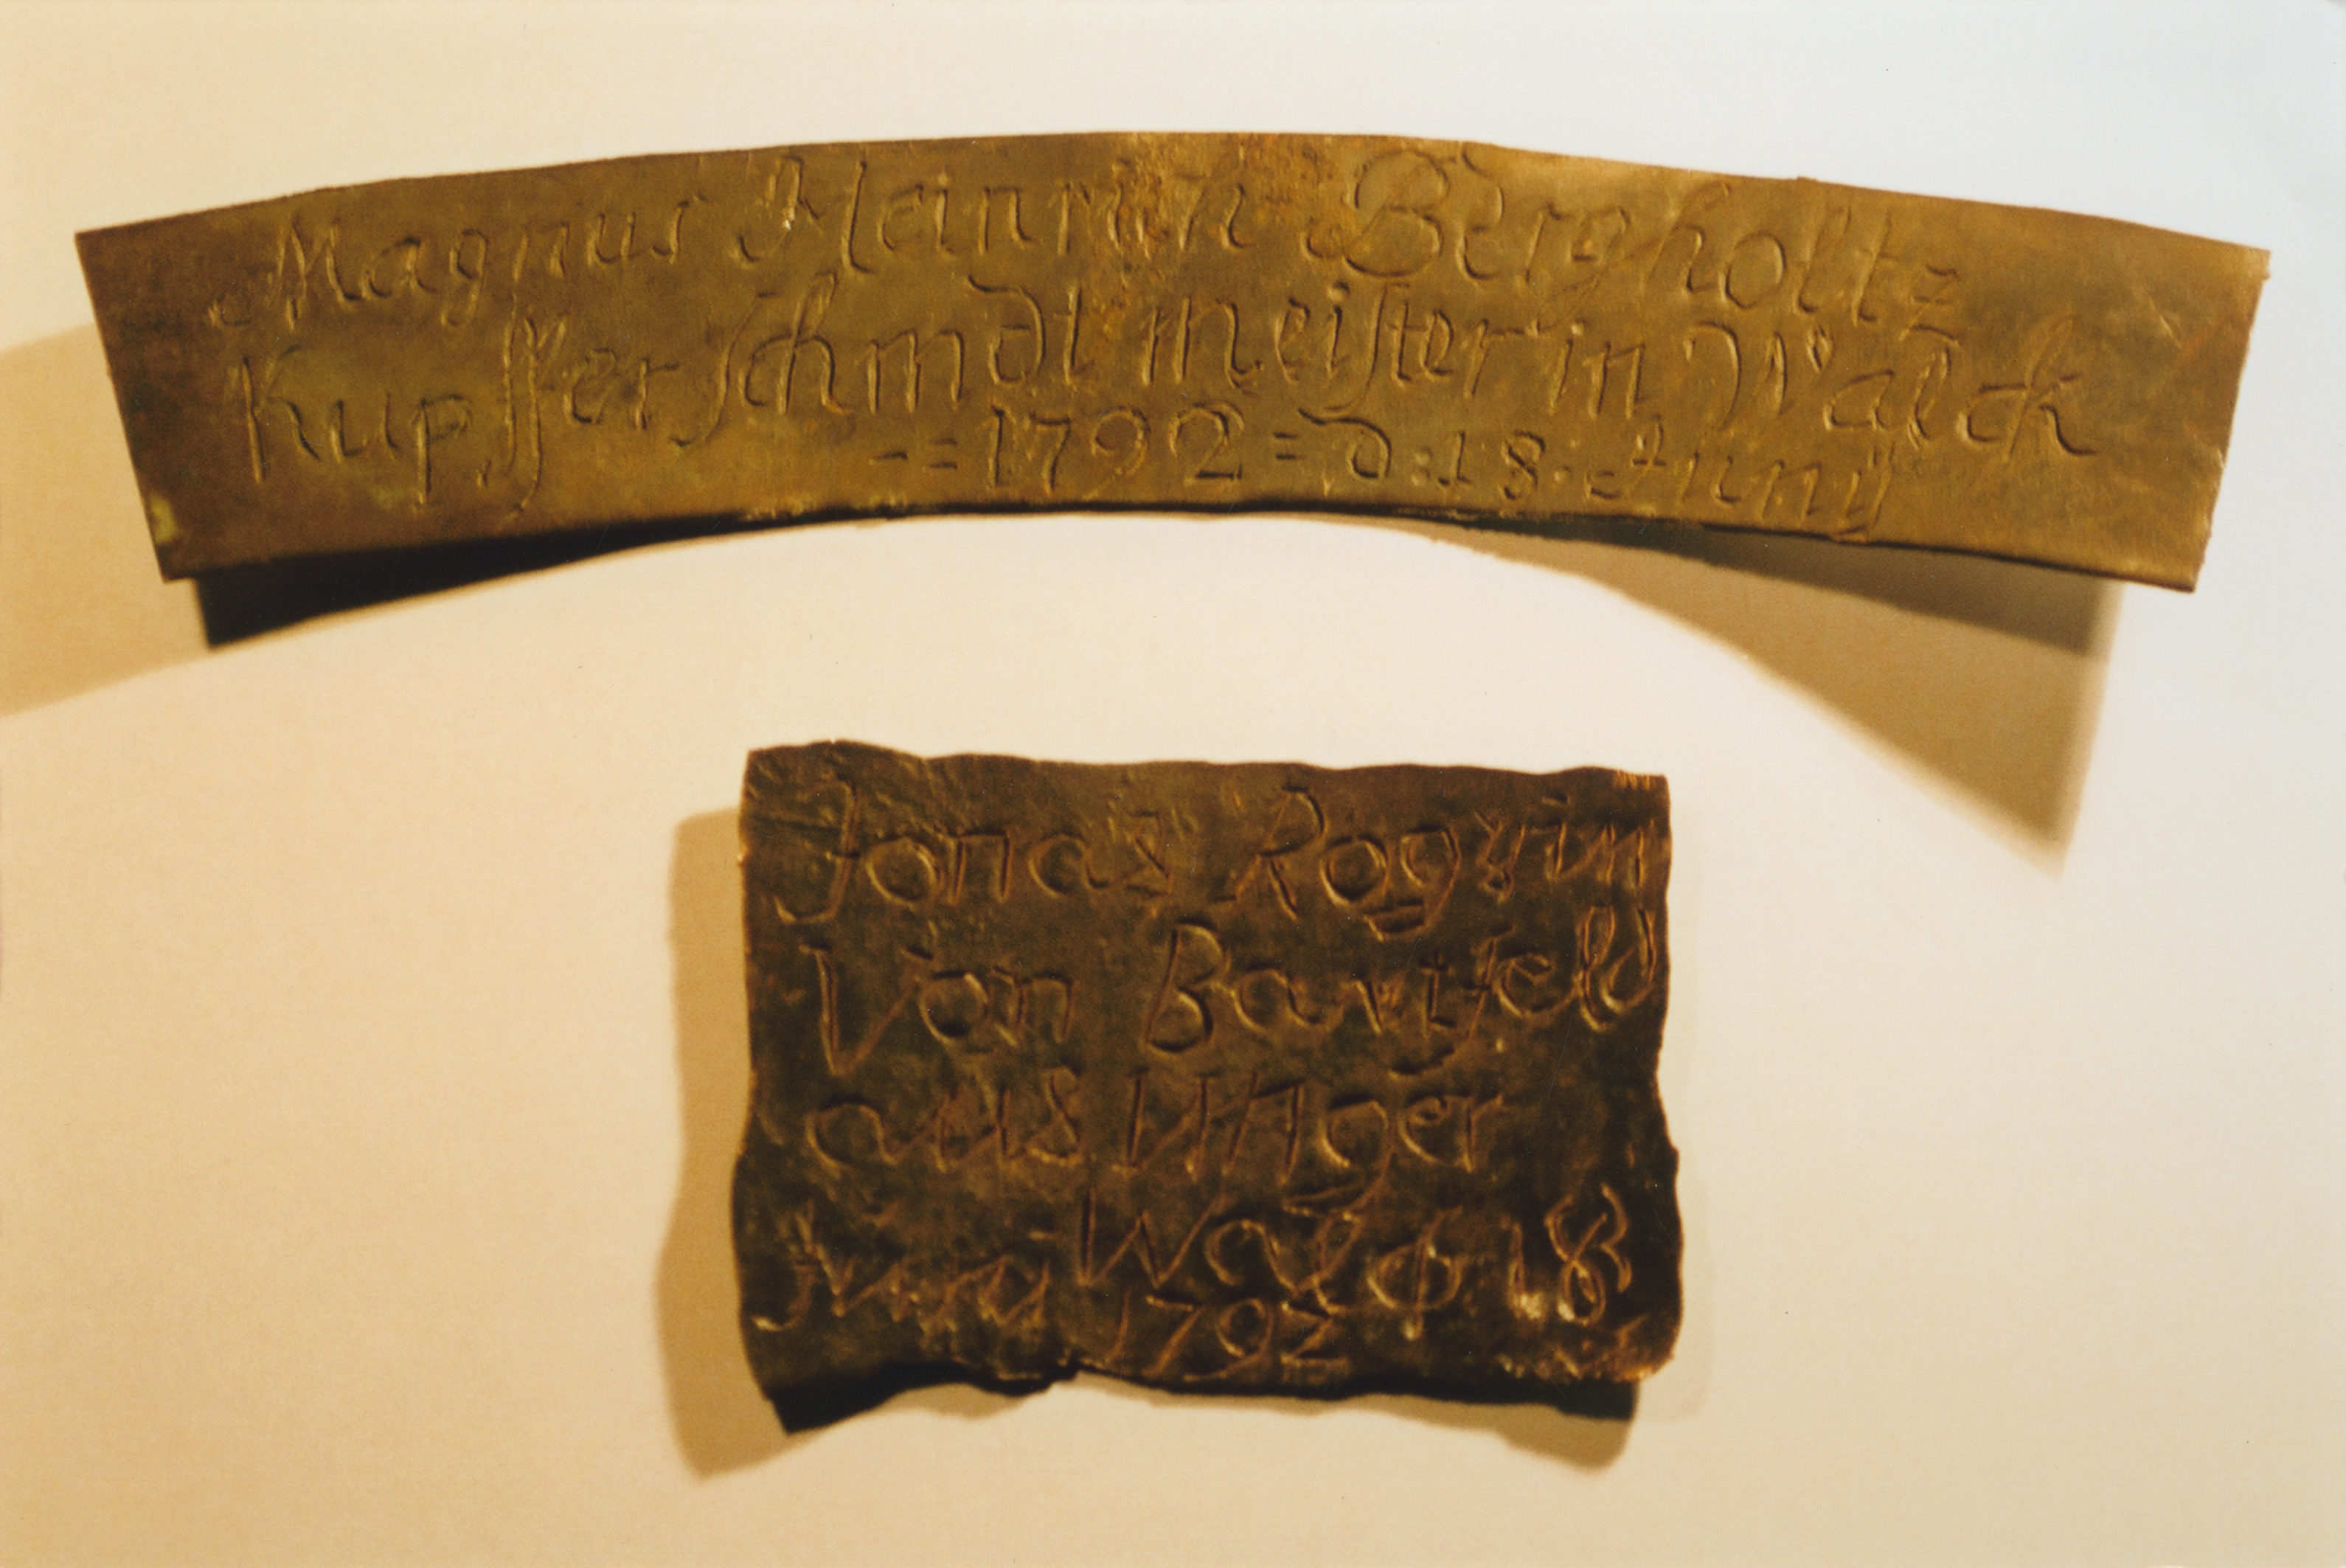 Magnus Heinrich Bergholtz
Kupffer schmdt meister in Walck
-= 1792 = d: 18. Juny
Jonas
Von Bartfeld
aus Unger
Wal d 18
1792